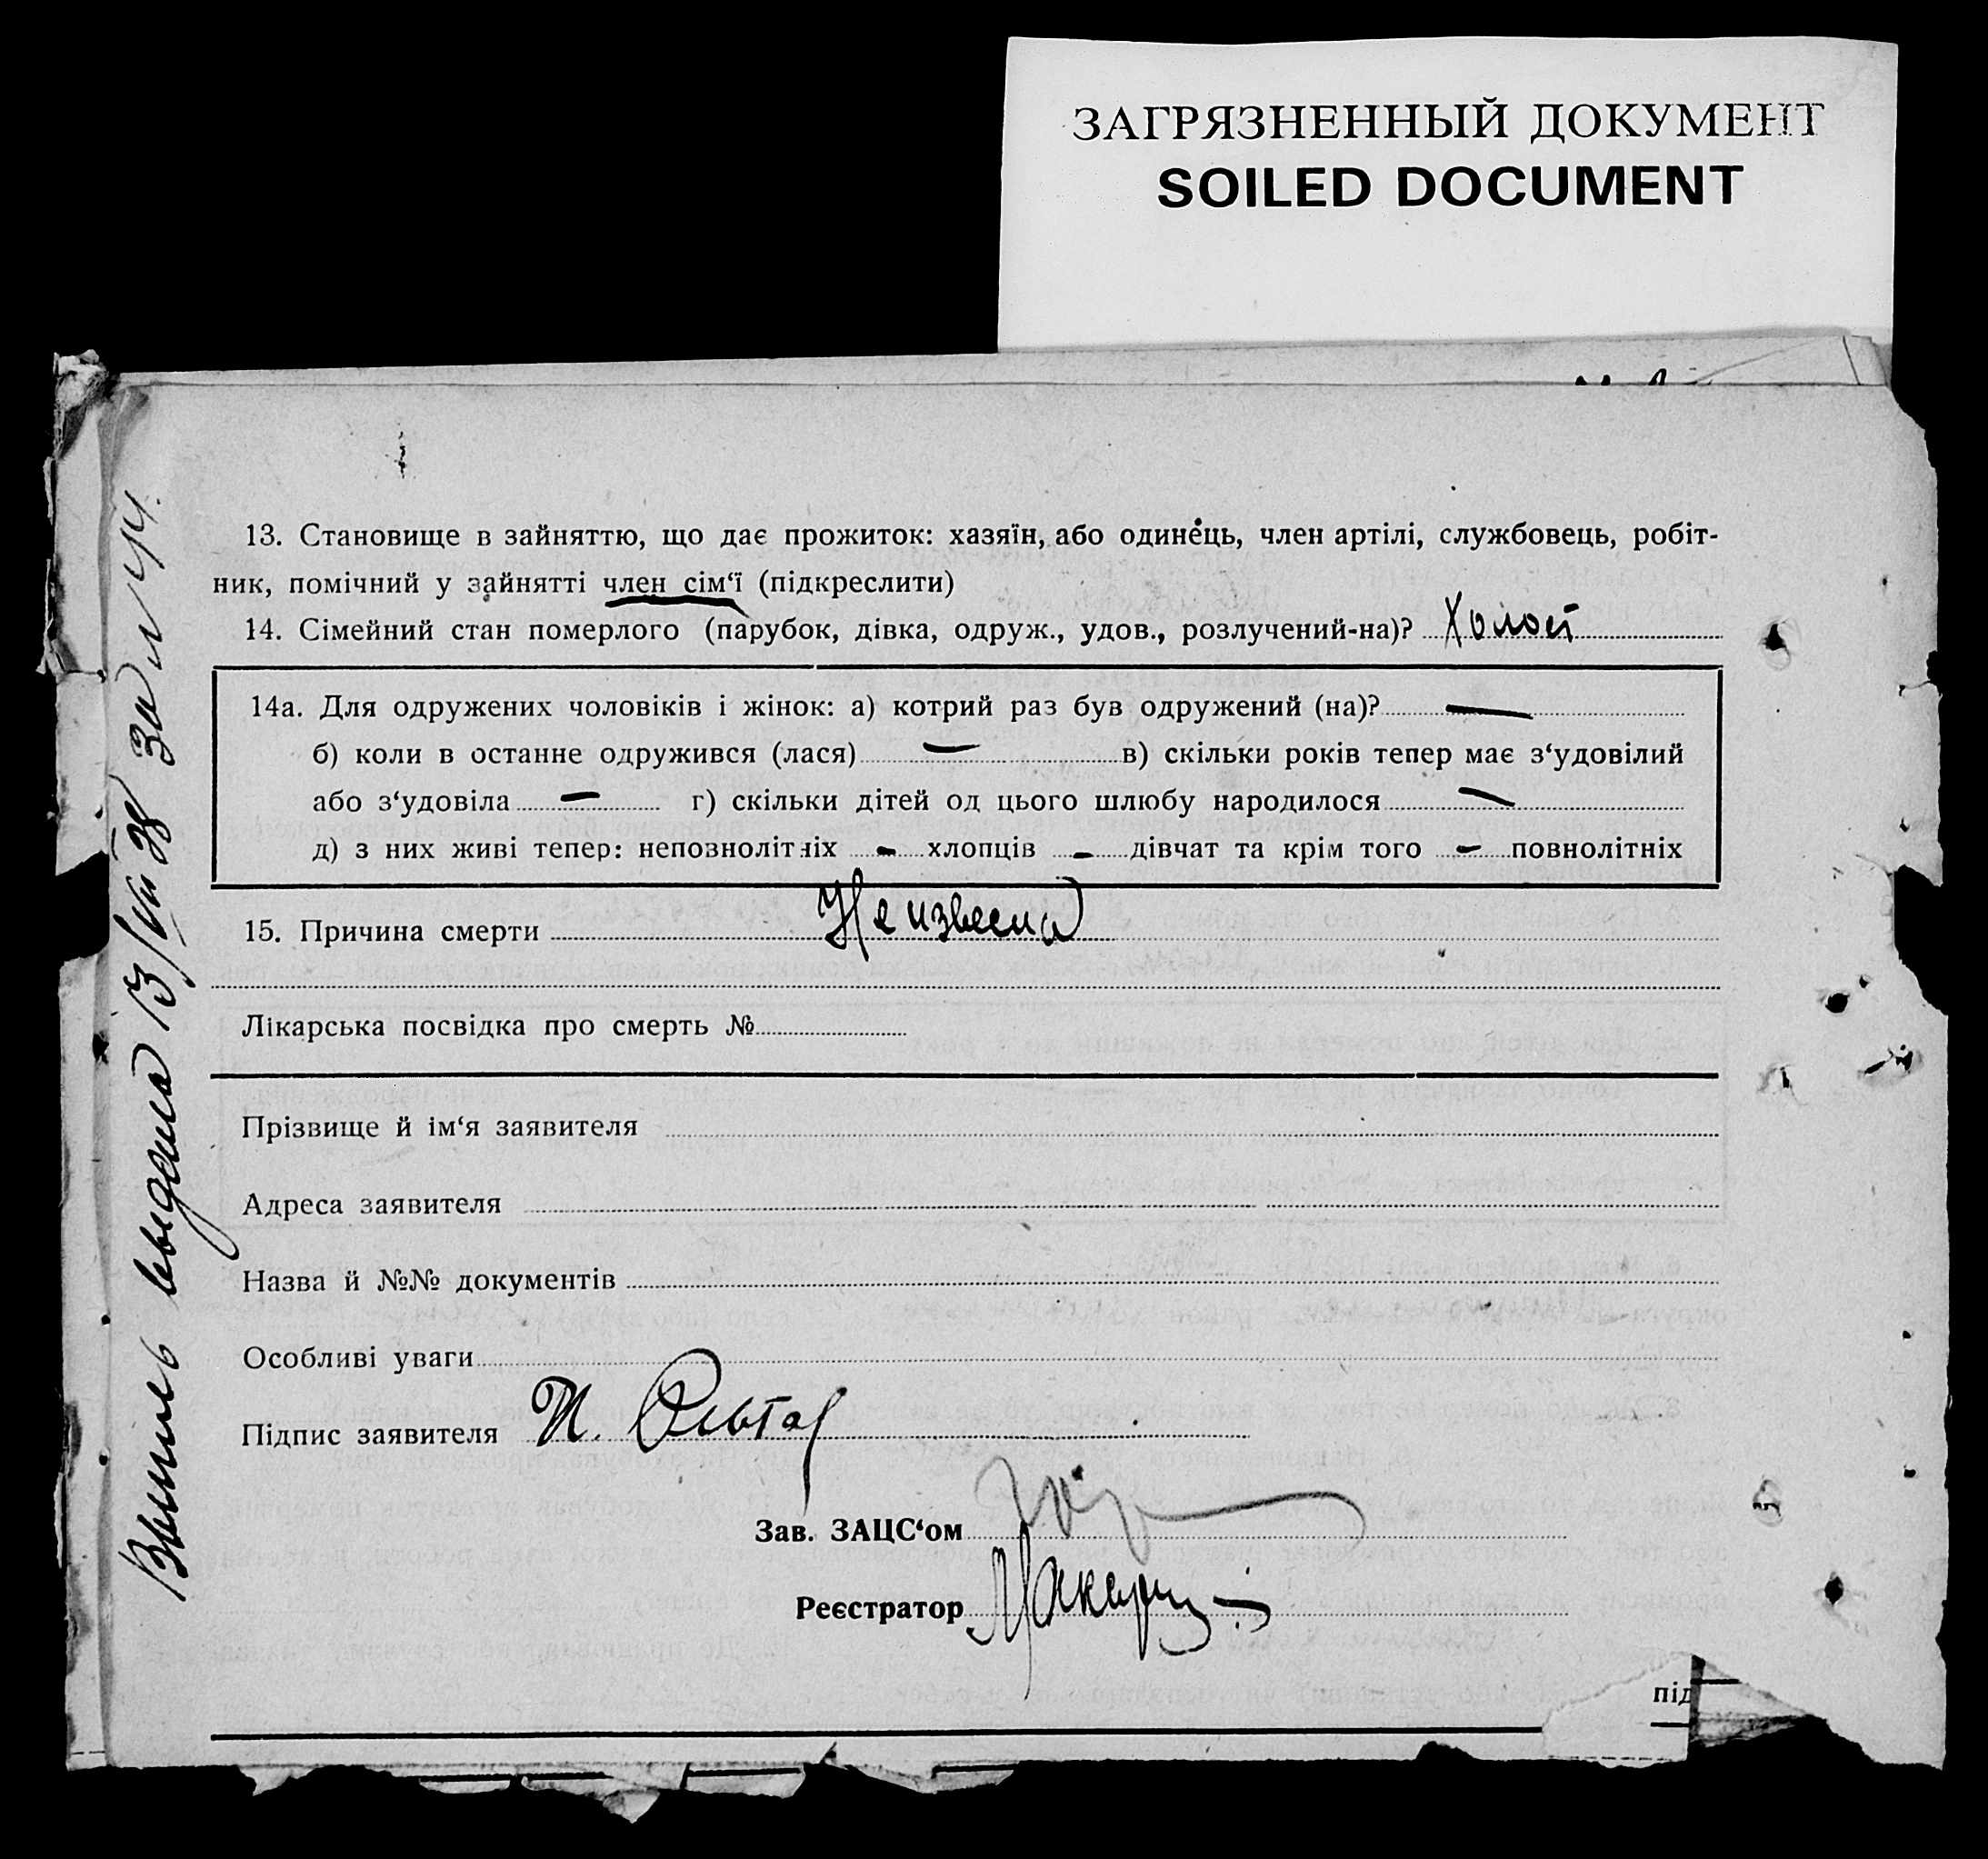 ЗАГРЯЗНЕННЫЙ ДОКУМЕНТ
SOILED DOCUMENT
13. Становище в зайняттю, що дає прожиток: хазяїн, або одинець, член артілі, службовець, робіт-
ник, помічний у зайнятті член сім‘ї (підкреслити)
14. Сімейний стан померлого (парубок, дівка, одруж., удов., розлучений-на)? Холост
14а. Для одружених чоловіків і жінок: а) котрий раз був одружений (на)? —
б) коли в останне одружився (лася) — в) скільки років тепер має з‘удовілий
або з‘удовіла — г) скільки дітей од цього шлюбу народилося —
д) з них живі тепер: неповнолітніх - хлопців - дівчат та крім того - повнолітніх
15. Причина смерти Неизвесна
Лікарська посвідка про смерть №
Прізвище й ім‘я заявителя
Адреса заявителя
Назва й №№ документів
Особливі уваги
Підпис заявителя
Зав. ЗАЦС‘ом
Реєстратор
під
Выпись выдана 13/VII 38 За №